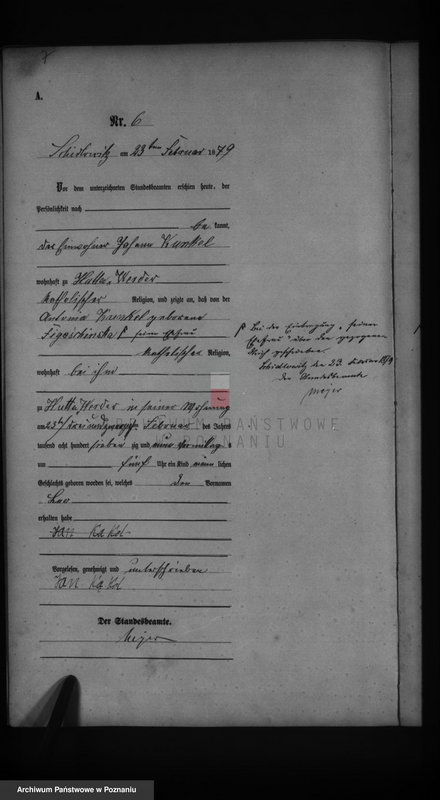 7
A.
Nr. 6
am 23ten Februar 1879
Vor dem unterzeichneten Standesbeamten erschien heute, der
Persönlichkeit nach
be kannt,
der Einwohner Johann Kunkel
wohnhaft zu Hutta Werder
katholischer Religion, und zeigte an, daß von der
Antonia Kunkel geborene
seine Ehefrau
katholischer Religion,
wohnhaft bei ihm
zu Hutta Werder in seiner Wohnung
am Februar des Jahres
tausend acht hundert sieben zig und neun Vormittag s
um fünf Uhr ein Kind männ lichen
Geschlechts geboren worden sei, welches den Vornamen
Leo
erhalten habe
Vorgelesen, genehmigt und unterschrieben
Der Standesbeamte.
Meijer
Bei der Eintragung „seiner
Ehefrau" über den gezogenen
Strich geschrieben
den 23. Februar 1879
Der Standesbeamte
Meijer
ARCHIWUM PAŃSTWOWE
W POZNANIU
Archiwum Państwowe w Poznaniu